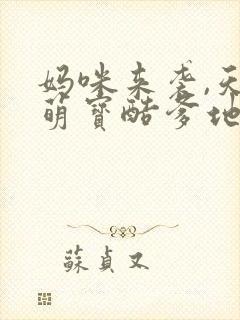 妈咪来袭,天
萌寶酷爹地
蘇貞又